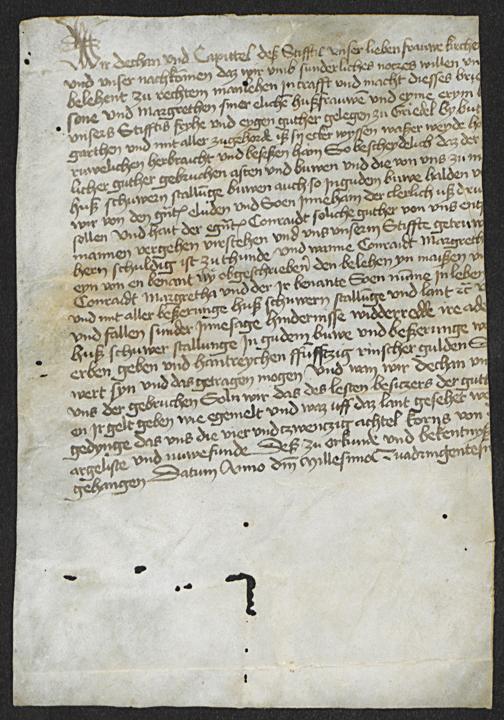 Wir dechan und Capittel deß Stiffts unser lieben frauwe kirche
und unser nachkomen daz wir umb sunderliches notzes willen un
belehent zu rechtem manlehen in crafft und macht dieses brie
sone und Margrethen siner elichen hußfrauwen und eyme erym
unsers Stiffts frihe und eygen guther gelegen zu Griedel by but
garthen und mit aller zugehorde iß in ecker wyssen waßer weyde
ruwelichen herbracht und beseßen hain So bescheydelich daz der
licher guther gebruchen asten und buwen und die von uns zu
huß schuwern stallunge buwen auch so in gudem buwe halden
wir von den Eluden und Soen inne hain der clerlich uß dru
sollen Und hait der Conraidt soliche guther von uns ent
mannen vergehen virstehen und uns unserm Stiffte getruw
hern schuldig ist zu thunde und wanne Conraidt Margreth
eyn von en benant wy obgeschrieben den belehen yn maißen
Conraidt Margretha und der ir benante Soen nume in leben
und mit aller beßerunge huß schuwern stallunge und lant
und fallen sunder innesage hindernisse widderredde
huß schuwer stallunge in gudem buwe und beßerunge
erben geben und hantreychen ffunfftzig rinscher gulden
wert syn und das getragen mogen Und wan wir dechan un
uns der gebruchen Soln wir das des lesten besitzers der guth
en ir gelt geben wie egemelt und waz uff daz lant gesehet
gedynge das uns die vier und tzwenzig achtel korns von
argeliste und nuwefunde Deß zu orkunde und bekentnyß
gehangen Datum Anno dni Millesimo Quadringentesi